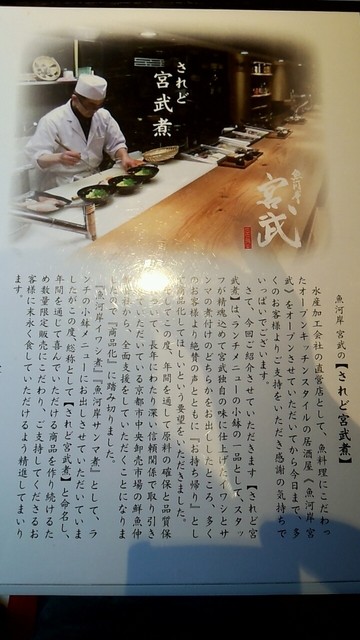 されど
宮武煮
魚河岸
宮武
魚河岸 宮武の【されど宮武煮】
水産加工会社の直営店として、魚料理にこだわっ
たオープンキッチンスタイルの居酒屋（魚河岸宮
武）をオープンさせていただいてから今日まで、多
くのお客様よりご支持をいただき感謝の気持ちで
いっぱいでございます。
さて、今回ご紹介させていただきます【されど宮
武煮】は、ランチメニューの小鉢の一品として、スタッ
フが精魂込めて宮武独自の味に仕上げた、イワシとサ
ンマの煮付けのどちらかをお出ししたところ、多く
のお客様より絶賛の声とともに『お持ち帰り』とし
て商品化してほしいという要望を、いただきました。
そしてこの度、年間を通して原料の確保と品質保
について、長年にわたり深い信頼関係で取り引き
ていただいてる京都市中央卸売市場の鮮魚仲
会社から、全面支援をしていただくことになりま
したので『商品化』に踏み切りました。
『魚河岸イワシ煮』『魚河岸サンマ煮』として、ラ
ンチの小鉢メニューにお出しさせていただいていま
したがこの度、総称として【されど宮武煮】と命名し、
年間を通じて喜んでいただける商品を作り続けるた
め数量限定販売にこだわり、ご支持してくださるお
客様に末永く食していただけるよう精進してまいり
ます。